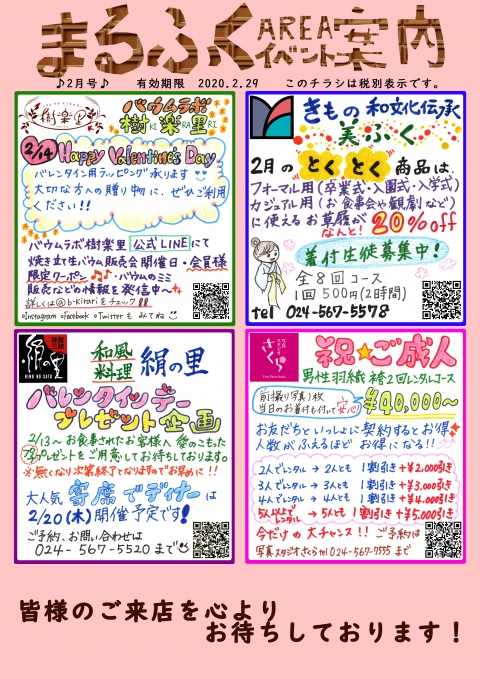 まるふくAREAイベント案内
♪2月号♪ 有効期限 2020.2.29 このチラシは税別表示です。
樹楽里
バウムラボ
樹KI楽RA里RI
2/14 Happy Valentine's Day
バレンタイン用ラッピング承ります
大切な方への贈り物に、ぜひご利用
ください!!
バウムラボ樹楽里 公式LINEにて
焼き立て生バウム販売会開催日・会員様
限定クーポン♪♪・バウムのミミ
販売などの情報を発信中〜
詳しくは@b-kirariをチェック!!
@Instagram @facebook @Twitterも みてね
きもの 和文化伝承
美ふく
2月の とくとく 商品は、
フォーマル用(卒業式・入園式・入学式)
カジュアル用(お食事会や観劇など)
に使えるお草履がなんと!20%off
着付生徒募集中!
全8回コース
1回500円(2時間)
tel 024-567-5578
絹の里
KINU NO SATO
和風料理 絹の里
バレンタインデー
プレゼント企画
2/13〜お食事されたお客様へ愛のこもった
プチプレゼントをご用意してお待ちしております。
※無くなり次第終了となりますのでお早めに!!
大人気 寄席でディナーは
2/20(木)開催予定です!
ご予約、お問い合わせは
024-567-5520まで
写真スタジオ さくら
祝★ご成人
男性羽織袴2回レンタルコース
前撮り写真1枚
当日のお着付も付いて安心 ¥40,000〜
お友だちといっしょに契約するとお得
人数がふえるほどお得になる!!
2人でレンタル→2人とも 1割引き+¥2,000引き
3人でレンタル→3人とも 1割引き+¥3,000引き
4人でレンタル→4人とも 1割引き+¥4,000引き
5人以上でレンタル→5人とも 1割引き+¥5,000引き
今だけの大チャンス!! ご予約は
写真スタジオさくら tel 024-567-7555 まで
皆様のご来店を心より
お待ちしております!